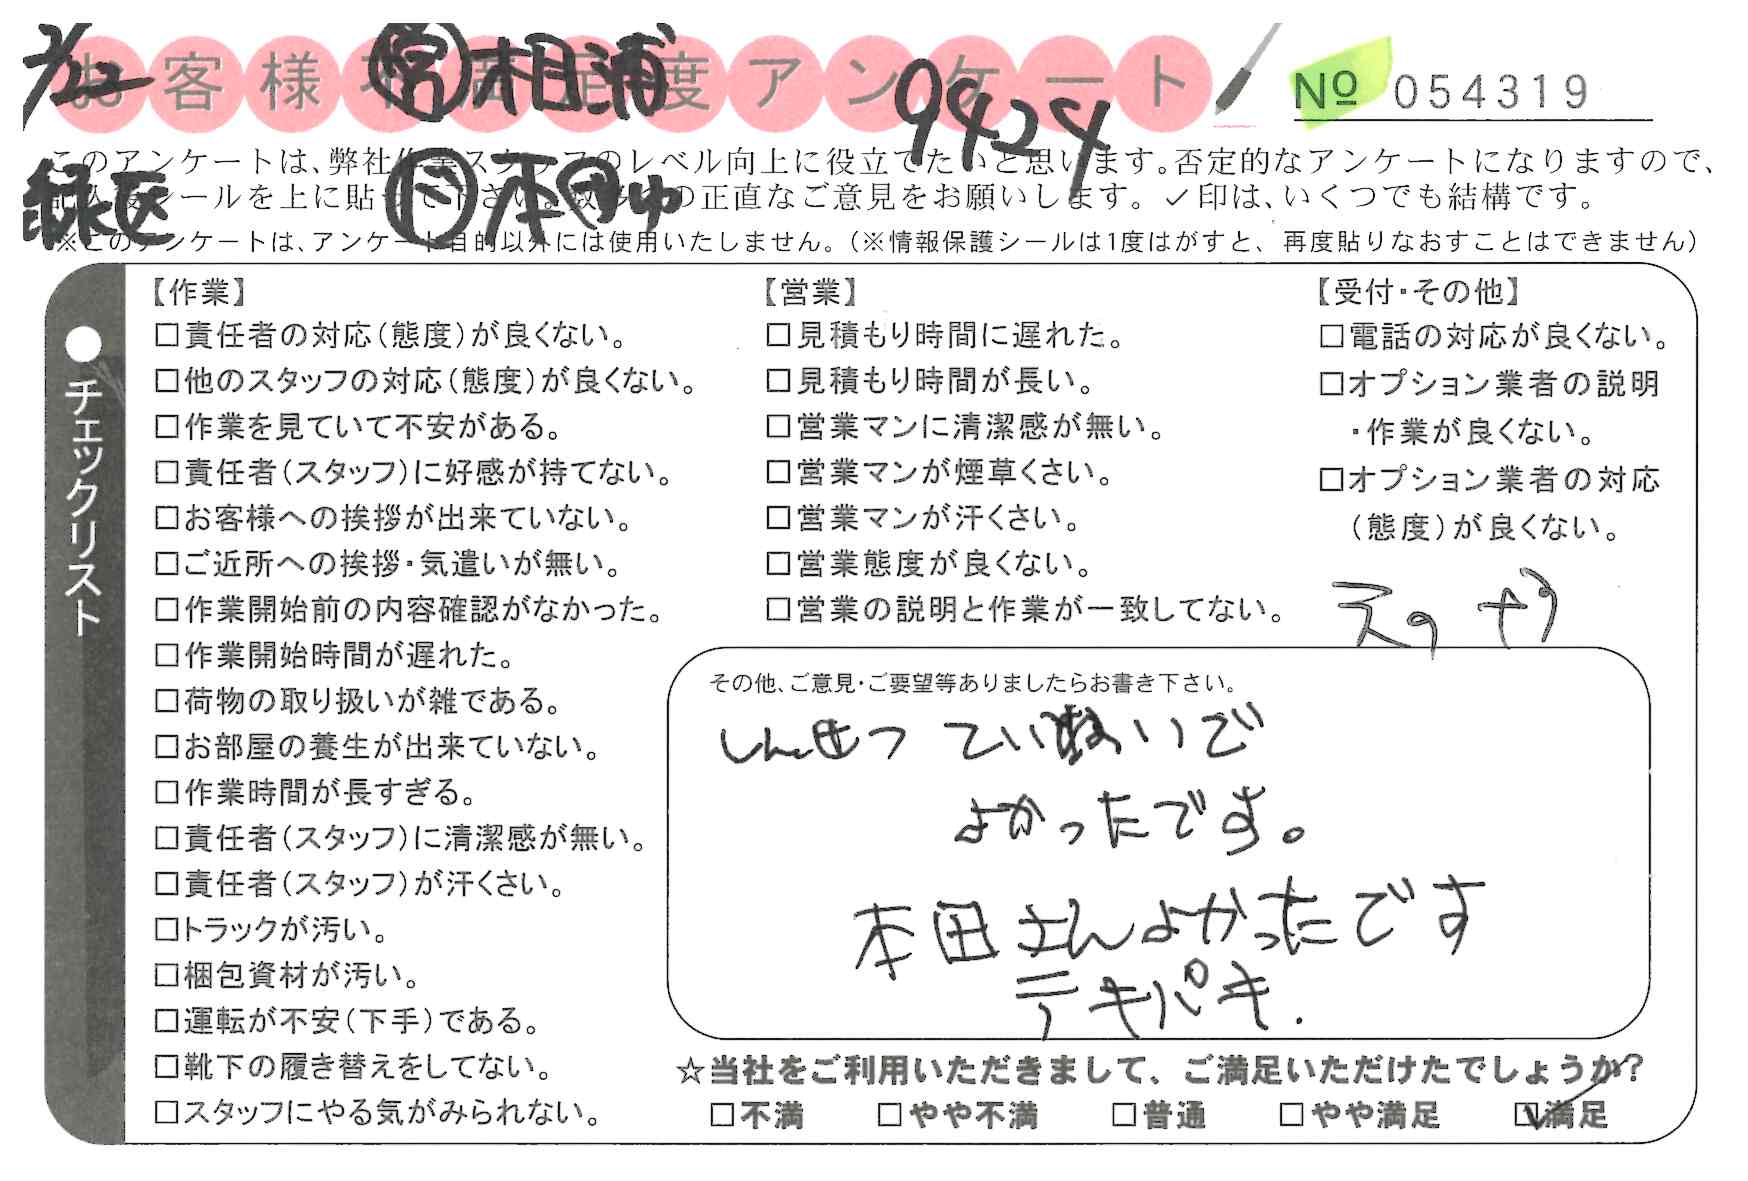 2/22 営 相浦 9424
お客様不満足度アンケート
№ 054319
緑区 本田ゆ
このアンケートは、弊社作業スタッフのレベル向上に役立てたいと思います。否定的なアンケートになりますので、
シールを上に貼って下さい。の正直なご意見をお願いします。✓印は、いくつでも結構です。
※このアンケートは、アンケート目的以外には使用いたしません。（※情報保護シールは1度はがすと、再度貼りなおすことはできません）
●チェックリスト
【作業】
□責任者の対応（態度）が良くない。
□他のスタッフの対応（態度）が良くない。
□作業を見ていて不安がある。
□責任者（スタッフ）に好感が持てない。
□お客様への挨拶が出来ていない。
□ご近所への挨拶・気遣いが無い。
□作業開始前の内容確認がなかった。
□作業開始時間が遅れた。
□荷物の取り扱いが雑である。
□お部屋の養生が出来ていない。
□作業時間が長すぎる。
□責任者（スタッフ）に清潔感が無い。
□責任者（スタッフ）が汗くさい。
□トラックが汚い。
□梱包資材が汚い。
□運転が不安（下手）である。
□靴下の履き替えをしてない。
□スタッフにやる気がみられない。
【営業】
□見積もり時間に遅れた。
□見積もり時間が長い。
□営業マンに清潔感が無い。
□営業マンが煙草くさい。
□営業マンが汗くさい。
□営業態度が良くない。
□営業の説明と作業が一致してない。
【受付・その他】
□電話の対応が良くない。
□オプション業者の説明
・作業が良くない。
□オプション業者の対応
（態度）が良くない。
その他、ご意見・ご要望等ありましたらお書き下さい。
しんせつ ていねいで
よかったです。
本田さんよかったです
テキパキ.
☆当社をご利用いただきまして、ご満足いただけたでしょうか?
□不満 □やや不満 □普通 □やや満足 ☑満足